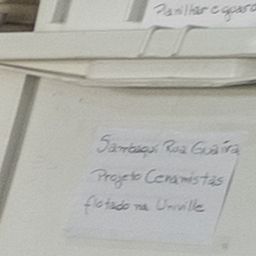 Planilhar e guard
Sambaqui Rua Guaíra
Projeto Ceramistas
flotado na Univille